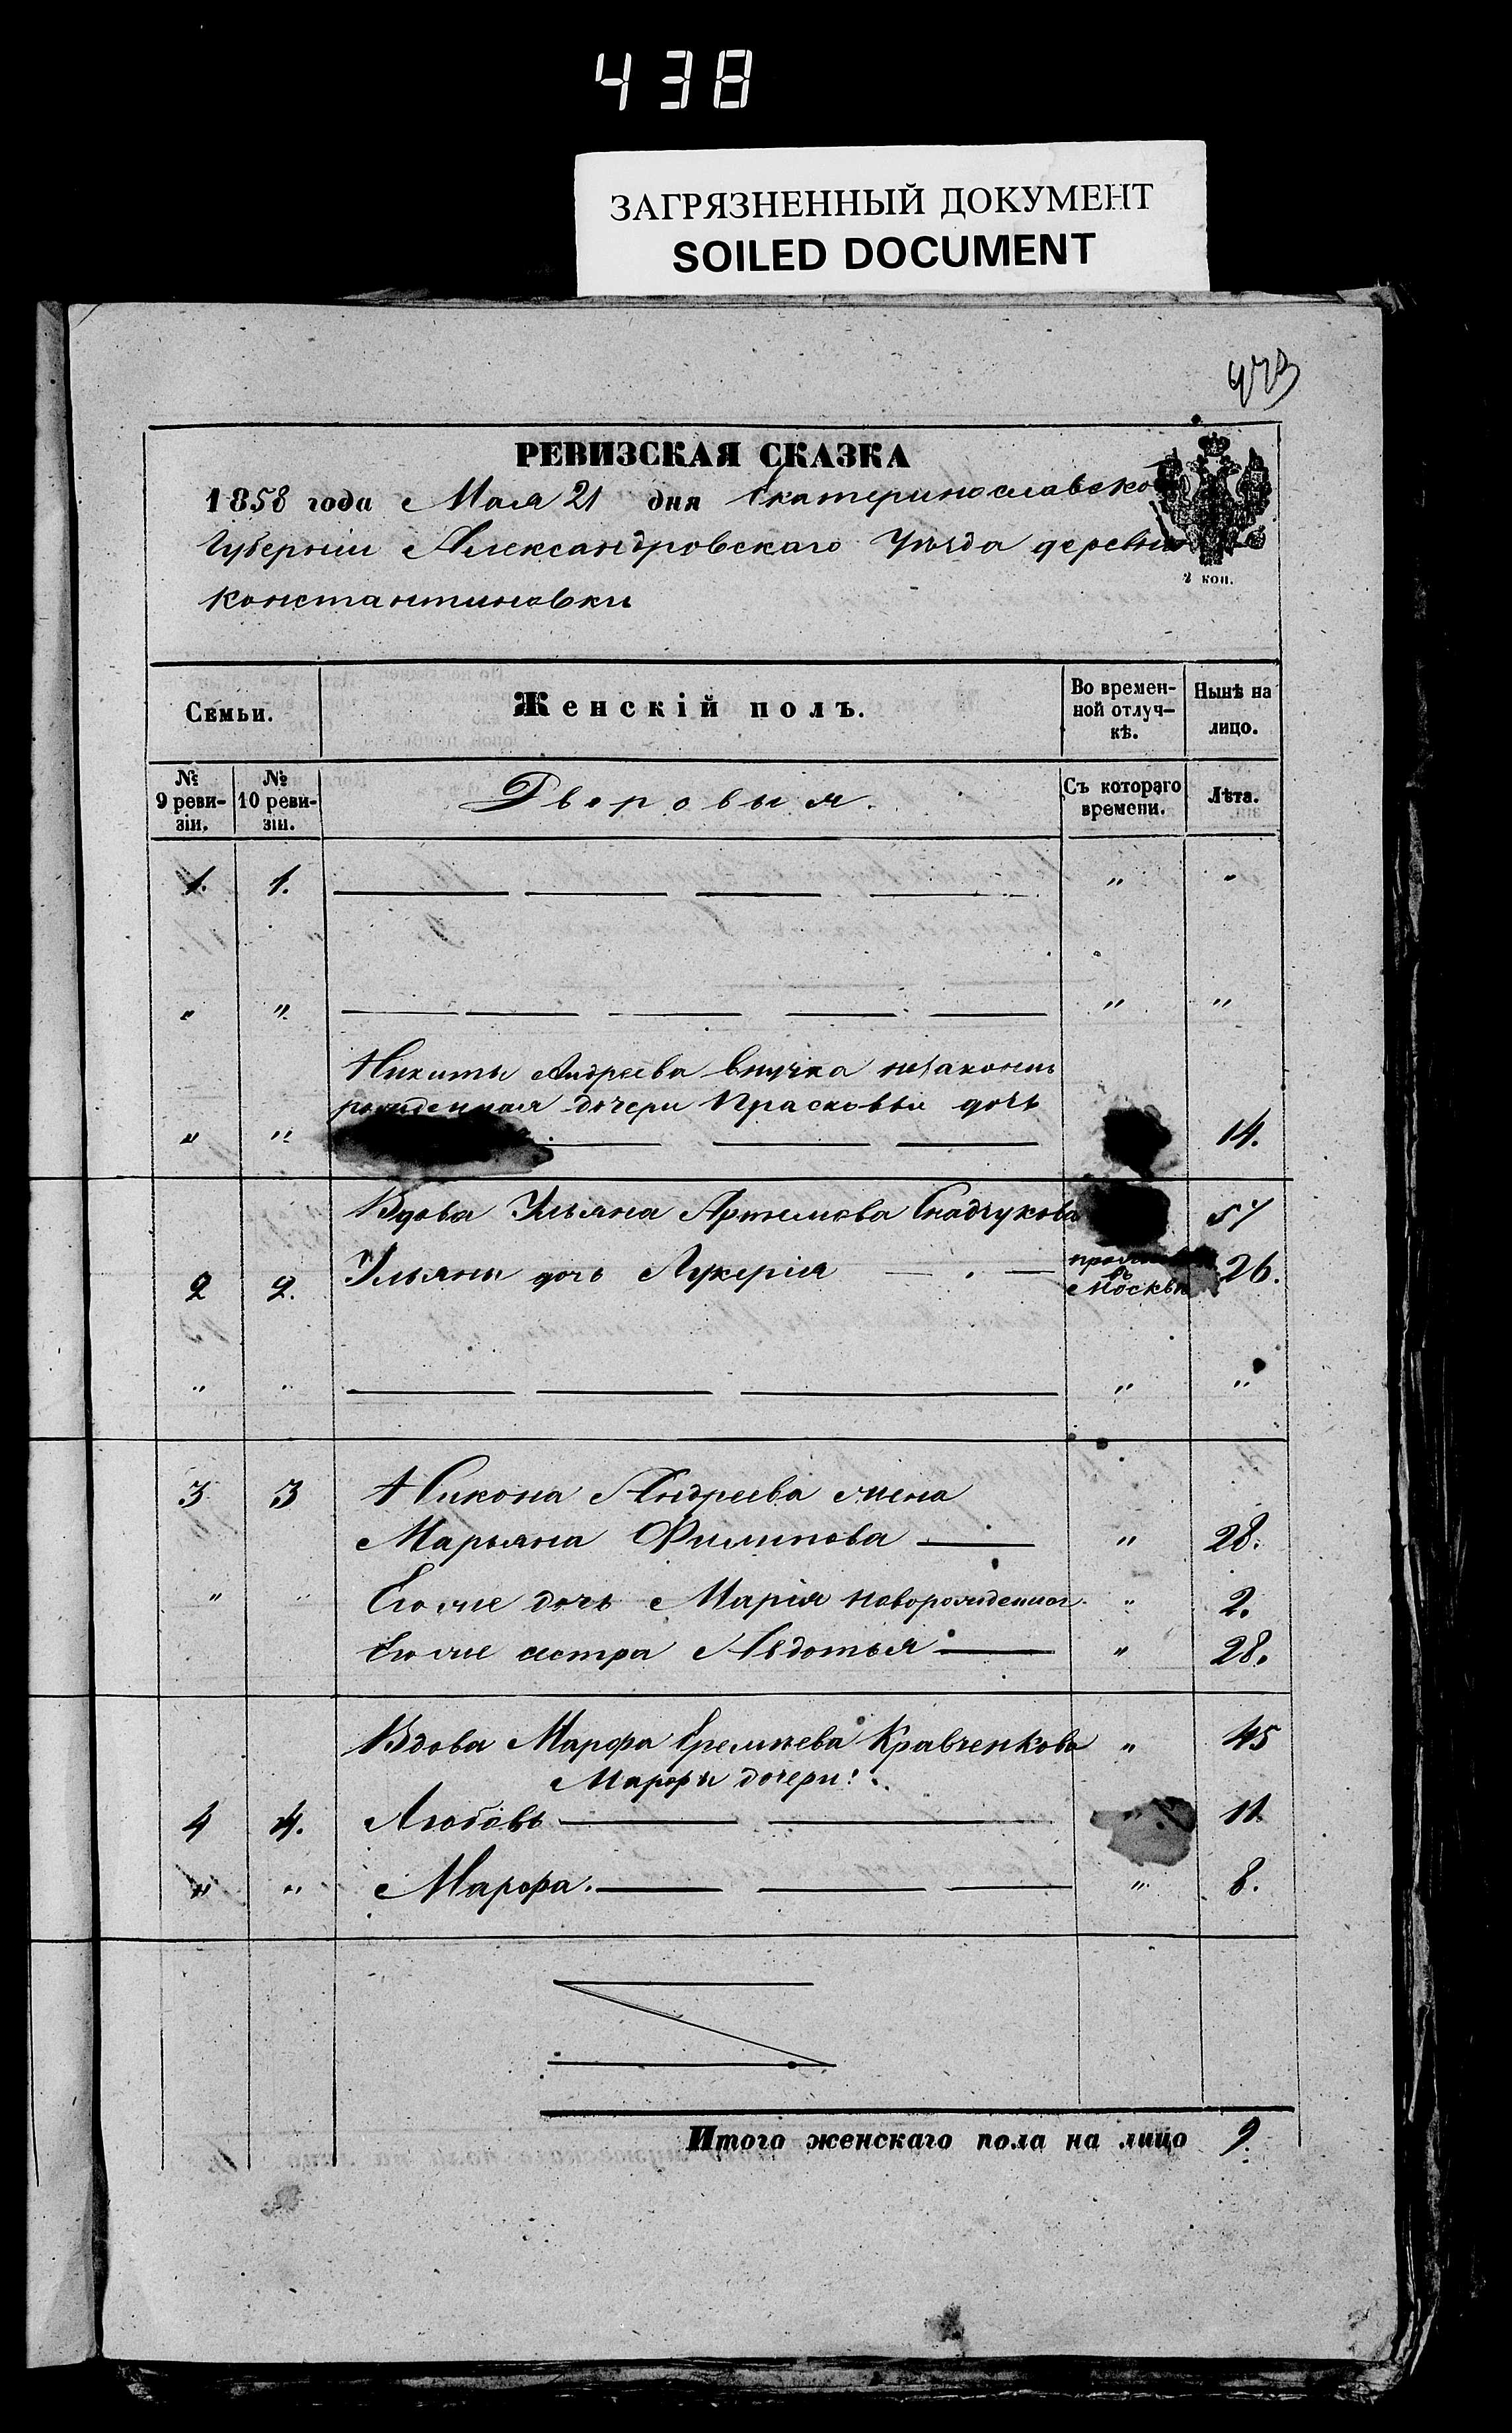 438
ЗАГРЯЗНЕННЫЙ ДОКУМЕНТ
SOILED DOCUMENT
РЕВИЗСКАЯ СКАЗКА
1858 года Мая 21 дня Екатеринославско
Губерніи Александровскаго Уѣзда деревни
Константиновки
2 коп.
Семьи. Женскій полъ. Во времен-ной отлуч-кѣ. Нынѣ на лицо.
№ 9 реви-зіи. № 10 реви-зіи. Дворовыя. Съ котораго времени. Лѣта.
1. 1. " "
" " " "
Никиты Андреева внучка незаконно
рожденная дочери Прасковьи дочь
" " 14.
Вдова Ульяна Артемова 57
2 2. Ульяны дочь Лукерія въ Москвѣ 26.
" " " "
3 3 Никона Андреева жена
Марьяна Филипова " 28.
" " Его же дочь Марія новорожденная " 2.
Его же сестра Авдотья " 28.
Вдова Марфа Еремѣева Кравченкова " 45
Марфы дочери:
4 4. Любовь " 11
" " Марфа. " 8.
Итого женскаго пола на лицо 9.